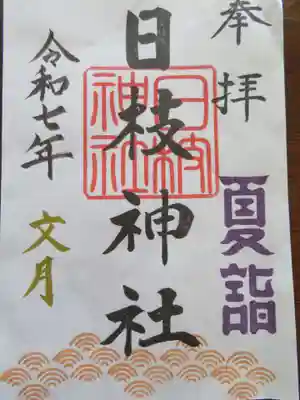 奉拝
夏詣
日枝神社
日枝神社
令和七年
文月